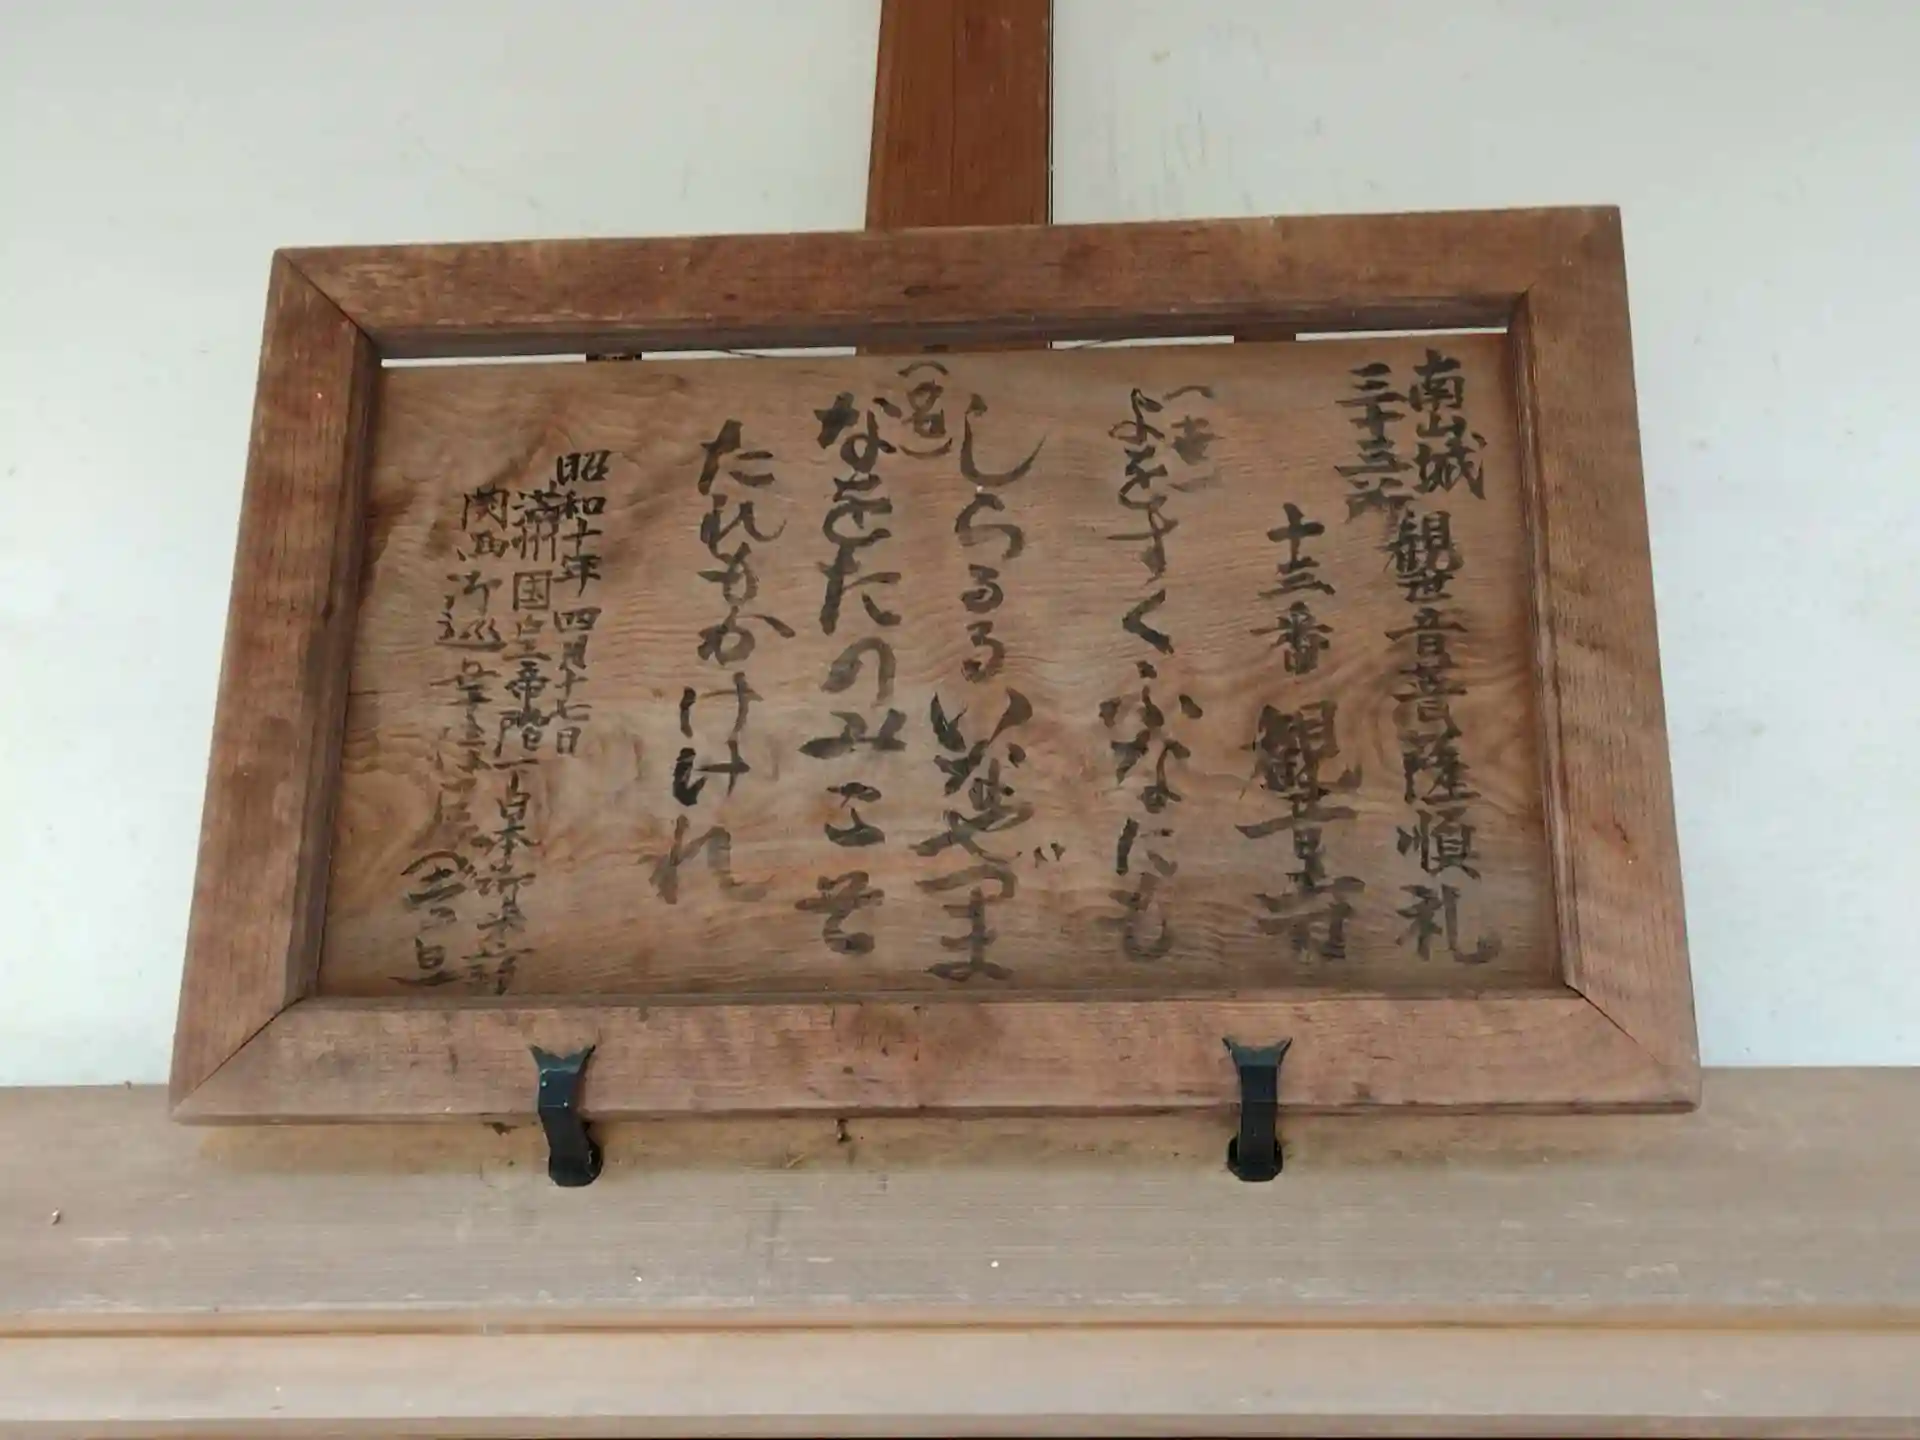 南山城
三十三所
観世音菩薩順礼
十三番 観音寺
(世)
よをすくふなにも
しらるるいなやづま
(名)
なをたのみこそ
たれもかけけれ
昭和十年四月十七日
満州国皇帝陛下日本御来訪
関西御巡幸